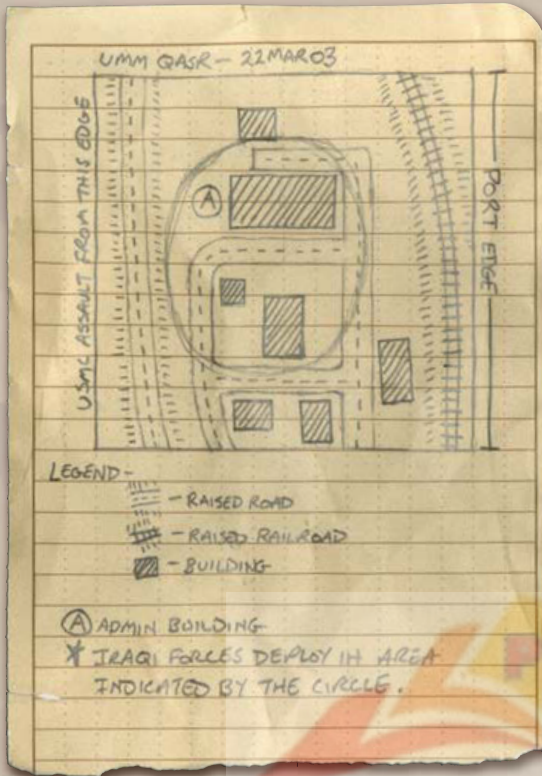 UMM QASR - 22 MAR 03
USMC ASSAULT FROM THIS EDGE
A
PORT EDGE
LEGEND -
- RAISED ROAD
- RAISED RAILROAD
- BUILDING
A ADMIN BUILDING
* IRAQI FORCES DEPLOY IN AREA
INDICATED BY THE CIRCLE.